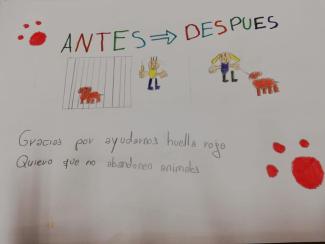 ANTES ⇒ DESPUES
Gracias por ayudarnos huella roja
Quiero que no abandonen animales